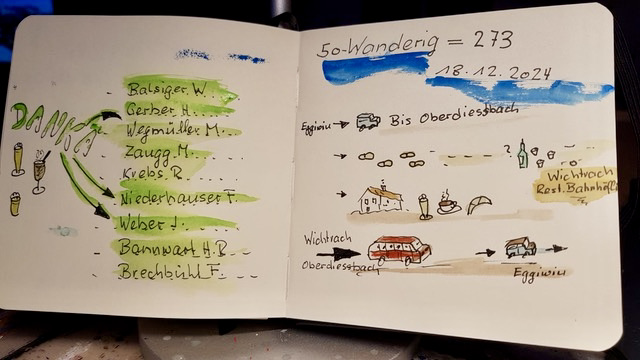 DANKE
Balsiger W.
Gerber H.
Wegmüller M.
Zaugg M.
Krebs R.
Niederhauser F.
Weber J.
Bannwart H.R.
Brechbühl F.
50-Wanderig = 273
18.12.2024
Eggiwiu → Bis Oberdiessbach
?
Wichtrach
Rest. Bahnhöfli
Wichtrach
Oberdiessbach
Eggiwiu